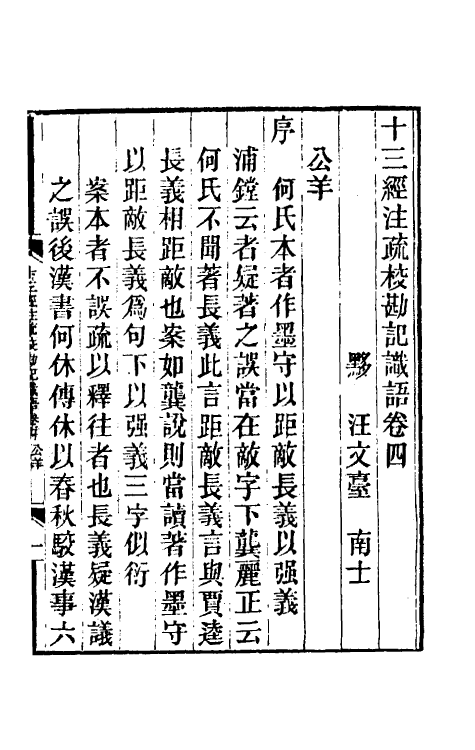 十三經注疏校勘記識語卷四
黟 汪文臺 南士
公羊
序 何氏本者作墨守以距敵長義以强義
浦鏜云者疑著之誤當在敵字下龔麗正云
何氏不聞著長義此言距敵長義言與賈逵
長義相距敵也案如龔說則當讀著作墨守
以距敵長義爲句下以强義三字似衍
案本者不誤疏以釋往者也長義疑漢議
之誤後漢書何休傳休以春秋駮漢事六
十三經注疏校勘記識語卷四 公羊 一